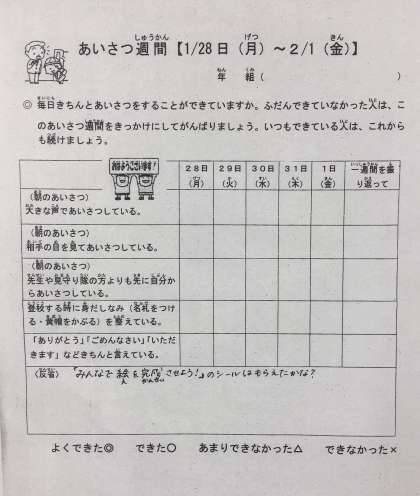 あいさつ週間【1/28日(月)〜2/1(金)】
年 組( )
◎毎日きちんとあいさつをすることができていますか。ふだんできていなかった人は、こ
のあいさつ週間をきっかけにしてがんばりましょう。いつもできている人は、これから
も続けましょう。
おはようございます!
28日(月) 29日(火) 30日(水) 31日(木) 1日(金) 一週間を振り返って
(朝のあいさつ)
大きな声であいさつしている。
(朝のあいさつ)
相手の目を見てあいさつしている。
(朝のあいさつ)
先生や見守り隊の方よりも先に自分か
らあいさつしている。
登校する時に身だしなみ(名札をつけ
る・黄帽をかぶる)を整えている。
「ありがとう」「ごめんなさい」「いただ
きます」などきちんと言えている。
〈反省〉「みんなで絵を完成させよう!」のシールはもらえたかな?
よくできた◎ できた〇 あまりできなかった△ できなかった×